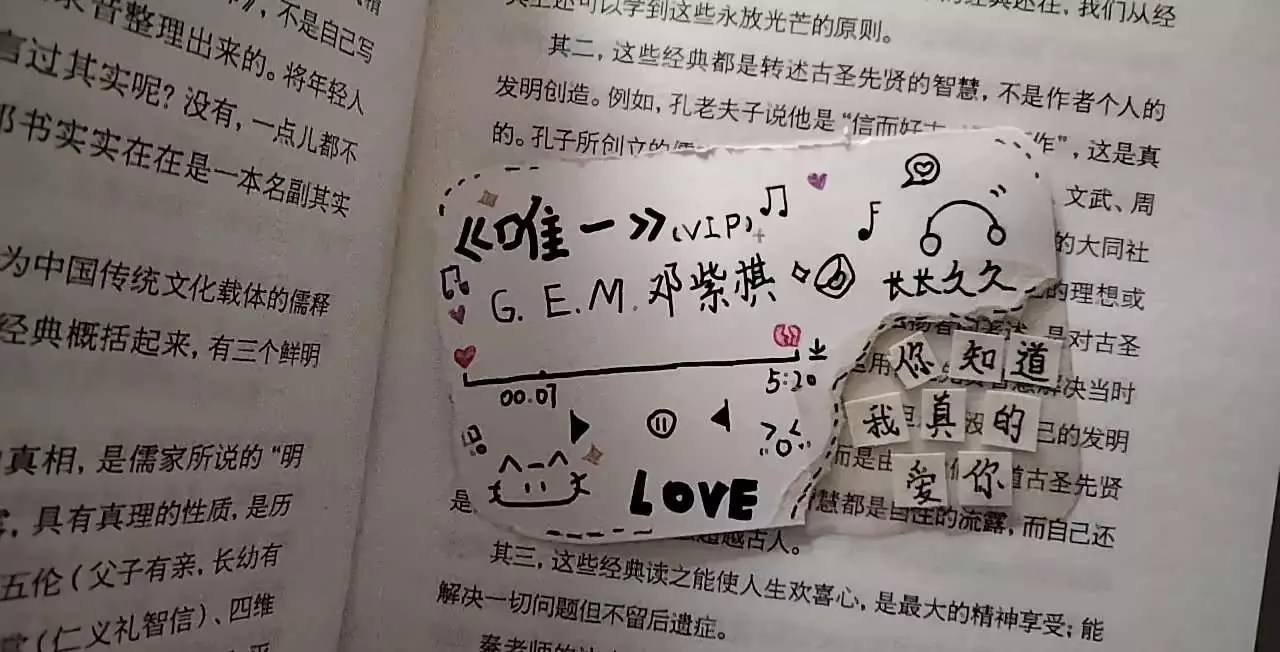 不是自己写
录音整理出来的。将年轻人
言过其实呢？没有，一点儿都不
那书实实在在是一本名副其实
为中国传统文化载体的儒释
经典概括起来，有三个鲜明
真相，是儒家所说的“明
具有真理的性质，是历
五伦（父子有亲，长幼有
（仁义礼智信）、四维
经典还在，我们从经
典上还可以学到这些永放光芒的原则。
其二，这些经典都是转述古圣先贤的智慧，不是作者个人的
发明创造。例如，孔老夫子说他是“信而好古 作”，这是真
的。孔子所创立的儒
文武、周
的大同社
的理想或
是对古圣
解决当时
己的发明
而是由 道古圣先贤
是 智慧都是自性的流露，而自己还
超越古人。
其三，这些经典读之能使人生欢喜心，是最大的精神享受；能
解决一切问题但不留后遗症。
秦老师的
《唯一》(VIP)
G.E.M.邓紫棋
长长久久
00:07
5:20
LOVE
你知道
我真的
爱你